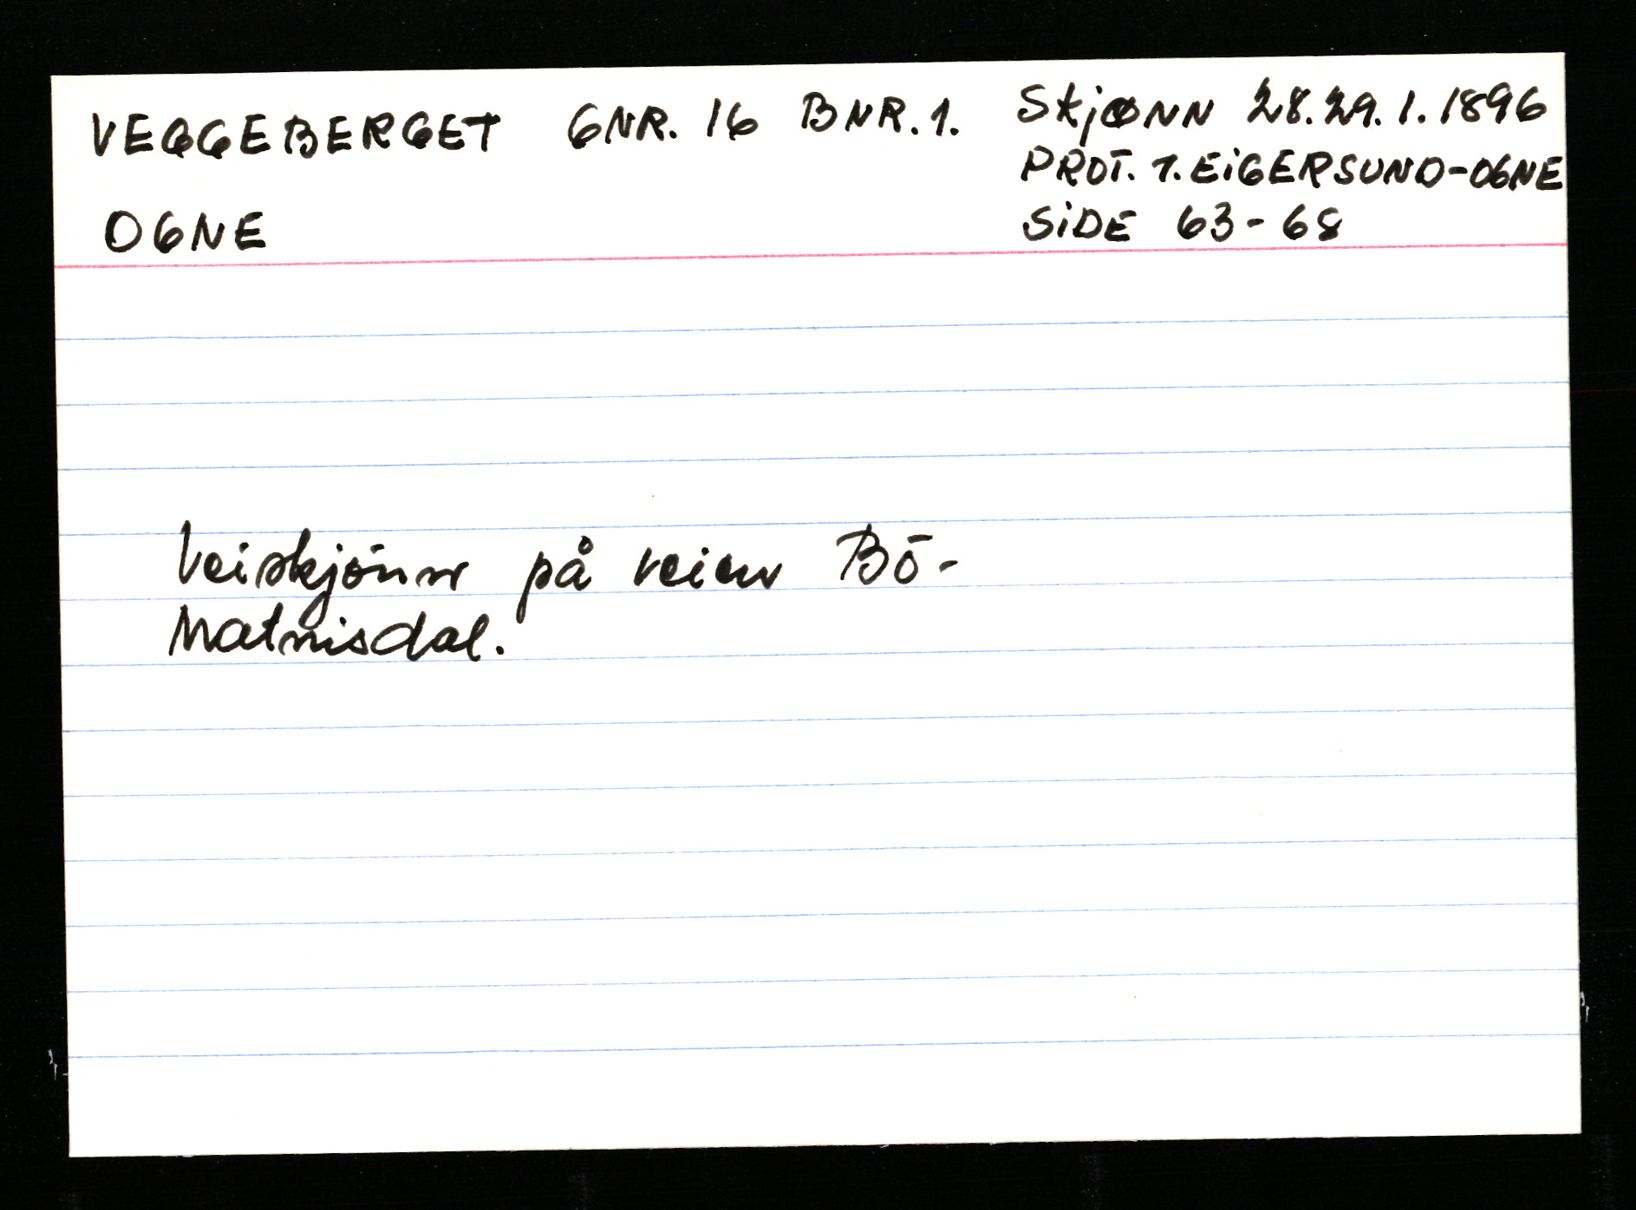 VEGGEBERGET GNR. 16 BNR. 1. Skjønn 28.29.1.1896
PROT. 1. EiGERSUND-OGNE
OGNE SiDE 63-68
Veiskjønn på veien Bö-
Matnisdal.